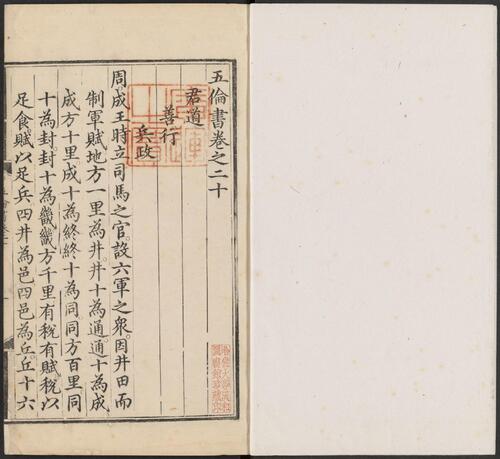 五倫書卷之二十
君道
善行
兵政
周成王時立司馬之官設六軍之衆因井田而
制軍賦地方一里為井井十為通通十為成
成方十里成十為終終十為同同方百里同
十為封封十為畿畿方千里有稅有賦稅以
足食賦以足兵四井為邑四邑為丘丘十六